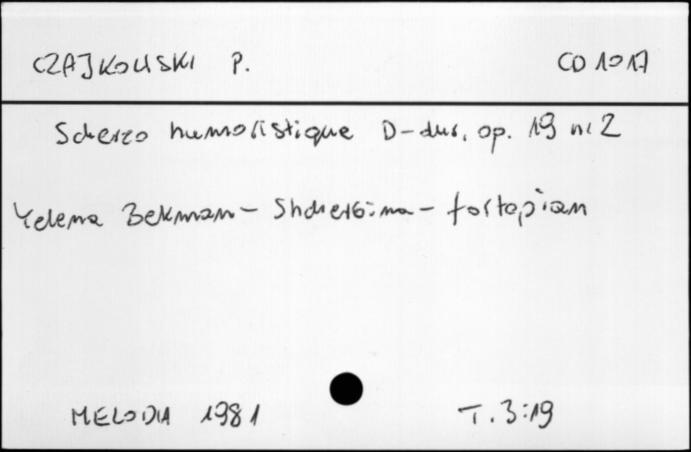 CZAJKOWSKI P. CD 1017
Scherzo humoristique D-dur, op. 19 nr 2
Yelena Bekman - Shcherbina - fortepian
MELODIA 1981 T. 3:19